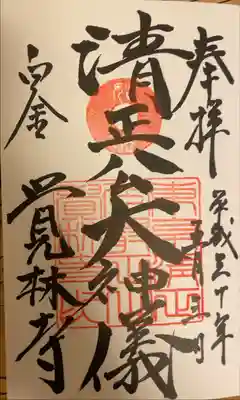 奉拝
平成三十年
五月三日
清正公大神儀
白金
覚林寺